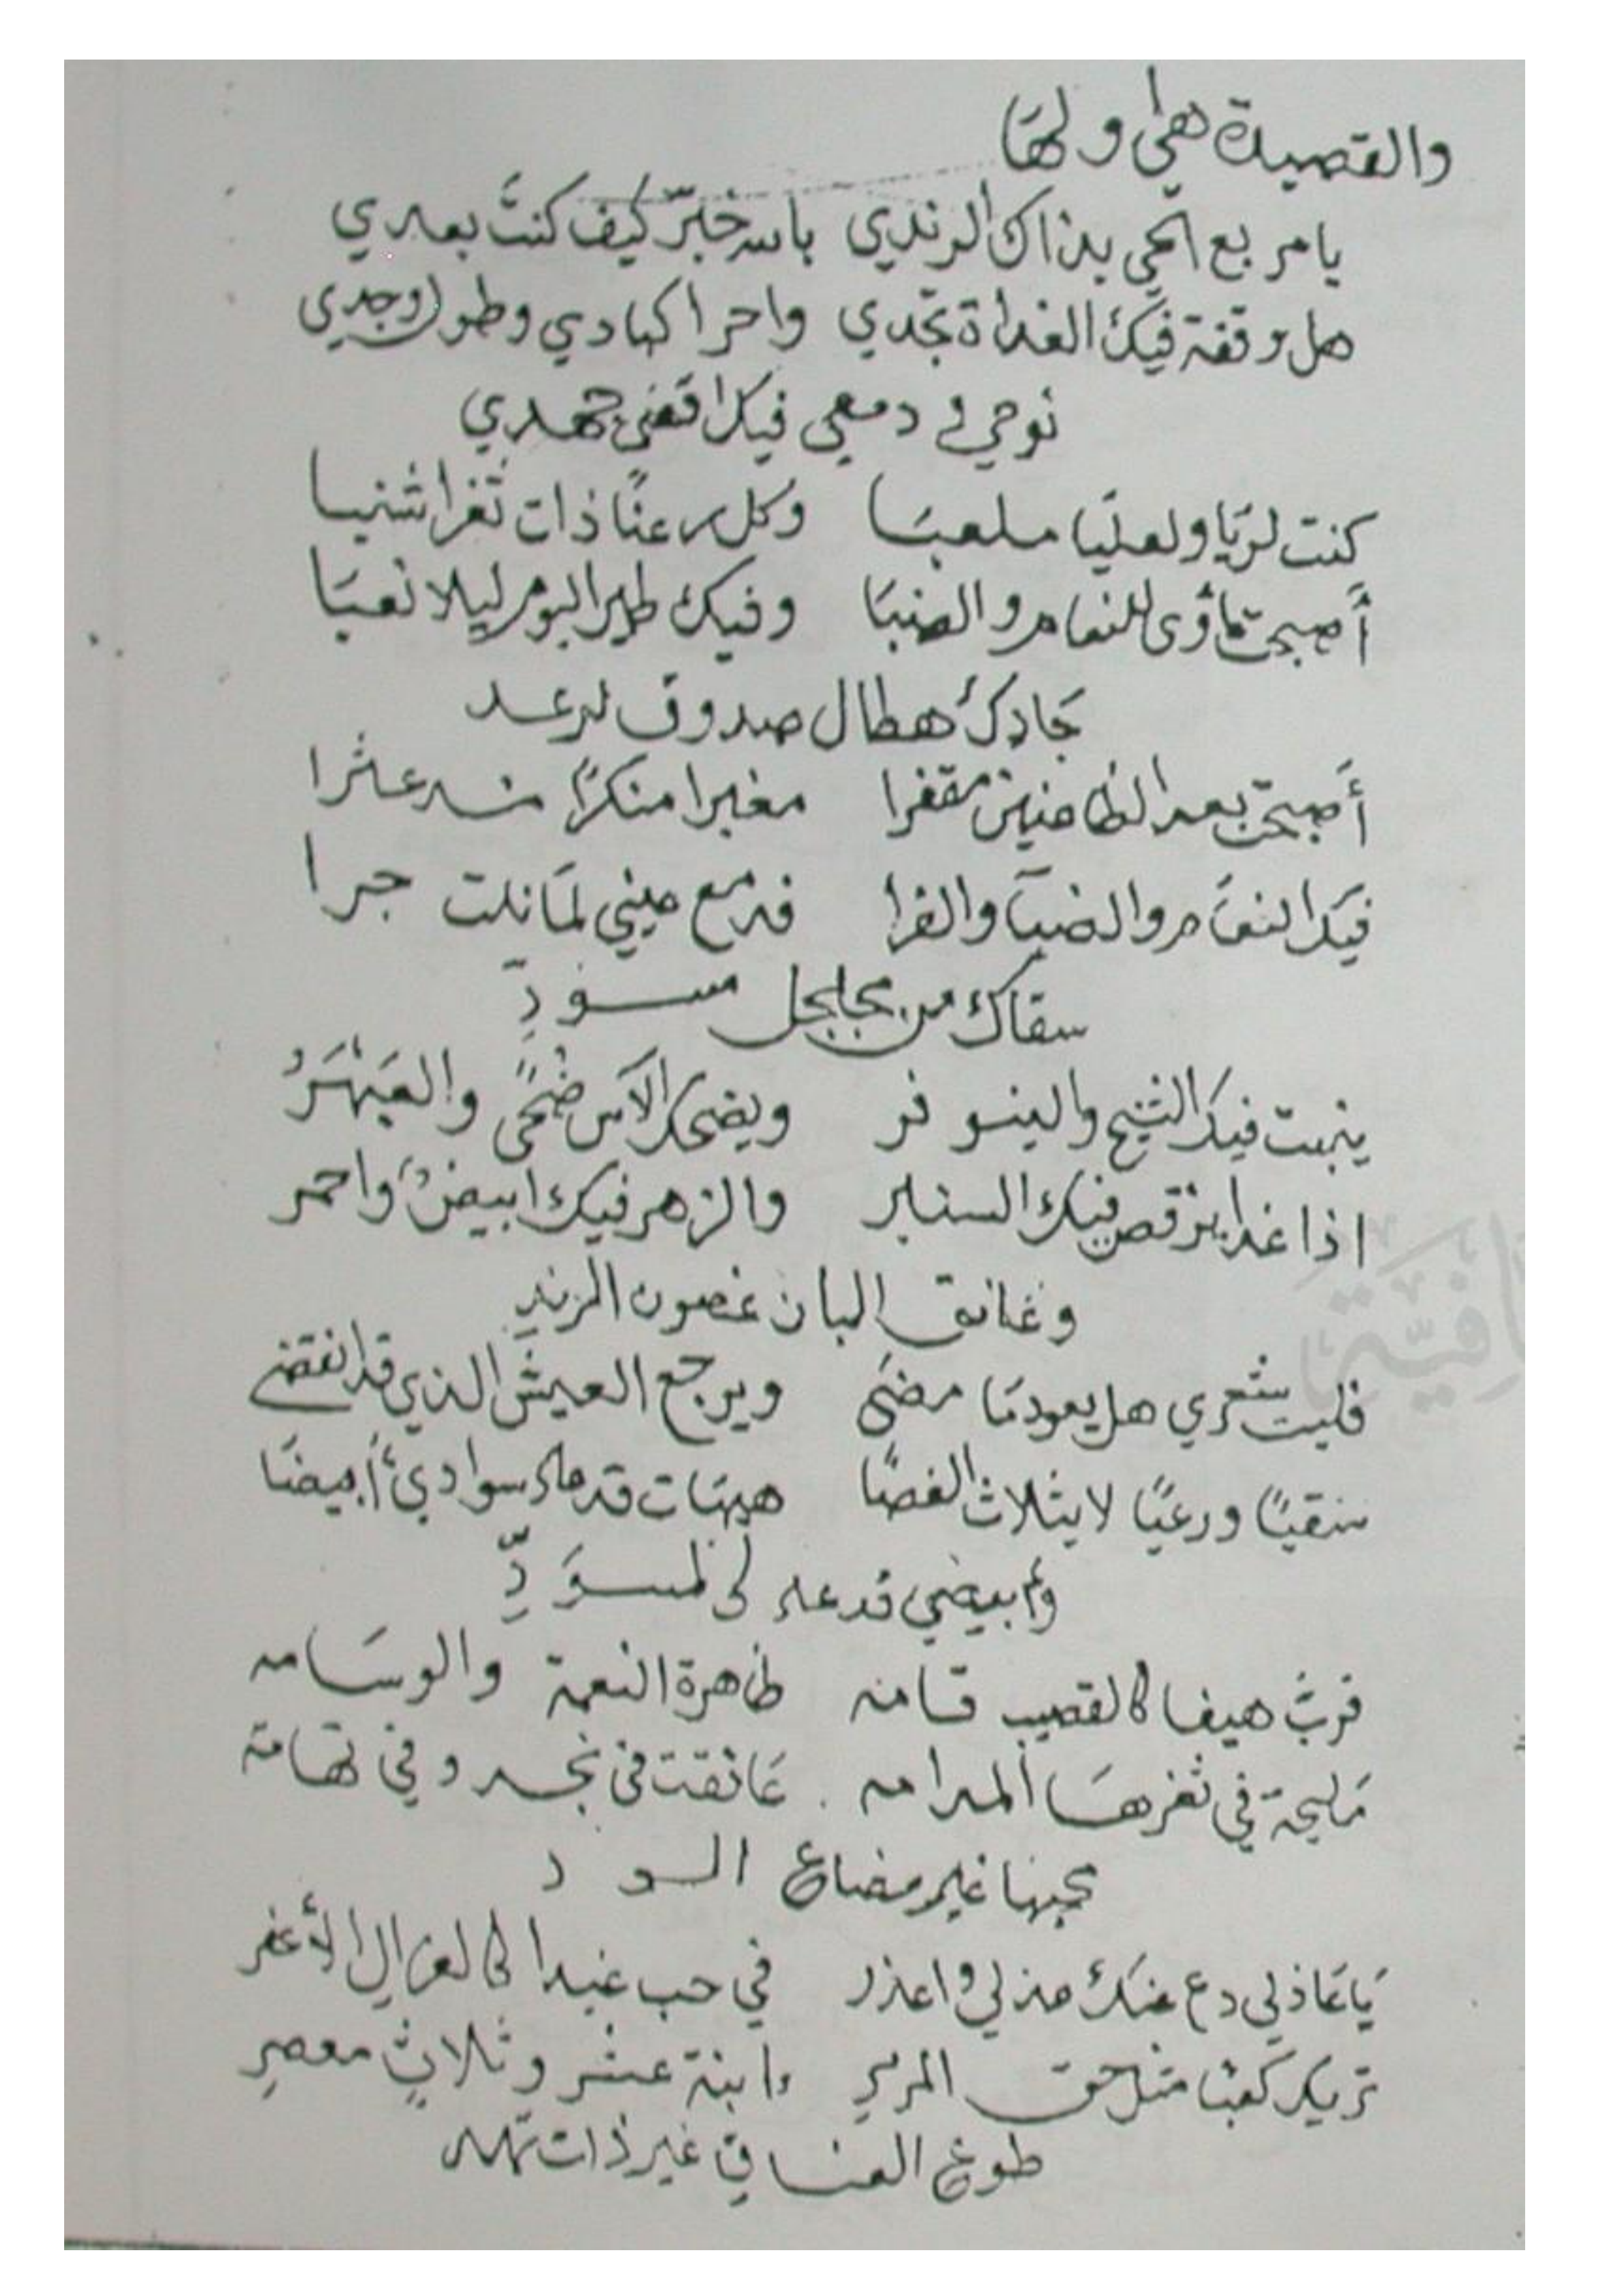 والقصيدة هي ولها
يا مربع الحي بذاك الرندي بالله خبّر كيف كنت بعدي
هل وقفة فيك الغداة تجدي واحرا كبادي وطول وجدي
نوحي في دمعي فيك اقضى جهدي
كنت لريّا ولعليا ملعبا وكل رعنًا ذات ثغر اشنبا
أصبحت مأوى للنعام والضبا وفيك طير البوم ليلا نعبا
جادك هطال صدوق لرعد
أصبحت بعد الظاعنين مقفرا مغبرا منكرًا عثرا
فيك النعام والضبا والفرا فدمع عيني لما نلت جرا
سقاك من مجلجل مسودِّ
ينبت فيك الشيح والينوفر ويضحك الآس ضحًى والعبهرُ
اذا غدا يرقص فيك السنبر والزهر فيك ابيضٌ واحمر
وعانق البان غصون الرند
فليت شعري هل يعود ما مضى ويرجع العيش الذي قد انقضى
سقيًا ورعيًا لايثلاث الغضا هيهات قد عاد سوادي أبيضا
وابيضي قد عاد لى لمسوَدِّ
فرب هيفا كالقضيب قامه ظاهرة النعمة والوسامه
مليحة في ثغرها المدامه عانقت في نجد وفي تهامة
بحبها غير مضاع الود
يا عاذلي دع عنك عذلي واعذر في حب غيدا كالغزال الأعفر
تريك كعبًا مثل حق المرمر وابنة عشر وثلاثٍ معصرِ
طوع العناق غير ذات نهد